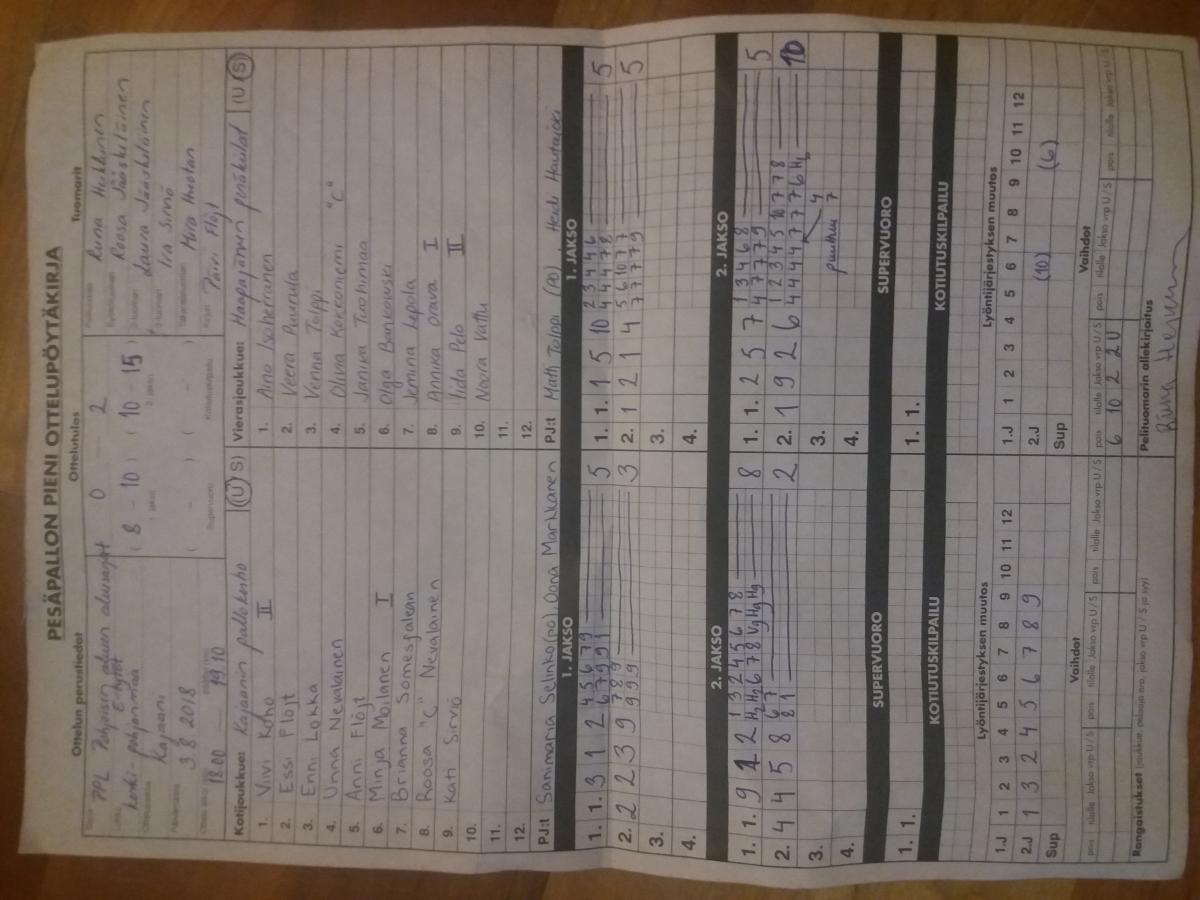 PESÄPALLON PIENI OTTELUPÖYTÄKIRJA
Ottelun perustiedot Ottelutulos Tuomarit
PPL Pohjoisen alueen aluesarjat 0 2
E-tytöt
keski-pohjanmaa (8 - 10) (10 - 15)
1. jakso 2. jakso
Kajaani
3.8.2018 ( - ) ( - )
18.00 19.10 Supervuoro Kotiutuskilpailu
Roosa Jääskeläinen
Laura Jääskeläinen
Ira Sirviö
Päivi Flöjt
Kotijoukkue: Kajaanin pallokerho (U S)
1. Viivi Koho II
2. Essi Flöjt
3. Enni Lokka
4. Unna Nevalainen
5. Anni Flöjt
6. Minja Moilanen I
7. Brianna Somesfalean
8. Roosa "C" Nevalainen
9. Kati Sirviö
10.
11.
12.
PJ:t Sanimaria Selinko (po), Oona Markkanen
Vierasjoukkue: Haapajärven pesäkulat (U S)
1. Aino Isoherranen
2. Veera Puurula
3. Venna Tolppi
4. Olivia Kokkoniemi "C"
5. Janika Tuohimaa
6. Olga Bankowski
7. Jemina Lepola
8. Annika Orava I
9. Iida Pelo II
10. Noora Vattu
11.
12.
PJ:t Matti Tolppi (PO), Heidi Hautajoki
1. JAKSO
1. 1. 3 1 2 4 5 6 7 9 5
6 7 9 9 1
2. 2 2 3 9 7 8 9 3
9 9 9
3.
4.
1. JAKSO
1. 1. 1 5 10 2 3 4 4 6 5
4 4 4 7 8
2. 1 2 1 4 5 6 10 7 7 5
7 7 7 7 9
3.
4.
2. JAKSO
1. 1. 9 1 2 1 3 2 4 5 6 7 8 8
H2 H2 6 7 8 V9 H9 H9
2. 4 4 5 8 6 7 2
8 1
3.
4.
2. JAKSO
1. 1. 2 5 7 1 3 4 6 8 5
4 7 7 7 9
2. 1 9 2 6 1 2 3 4 5 10 7 7 8 10
4 4 4 4 7 7 7 6 H6
3. 4
puuttuu 7
4.
SUPERVUORO
1. 1.
SUPERVUORO
1. 1.
KOTIUTUSKILPAILU
KOTIUTUSKILPAILU
Lyöntijärjestyksen muutos
1.J 1 2 3 4 5 6 7 8 9 10 11 12
2.J 1 3 2 4 5 6 7 8 9
Sup
Lyöntijärjestyksen muutos
1.J 1 2 3 4 5 6 7 8 9 10 11 12
2.J (10) (6)
Sup
Vaihdot
pois tilalle Jakso vrp U / S pois tilalle Jakso vrp U / S pois tilalle Jakso vrp U / S
Vaihdot
pois tilalle Jakso vrp U / S pois tilalle Jakso vrp U / S pois tilalle Jakso vrp U / S
6 10 2 2 U
Rangaistukset (joukkue, pelaaja nro, jakso vrp U / S ja syy)
Pelituomarin allekirjoitus